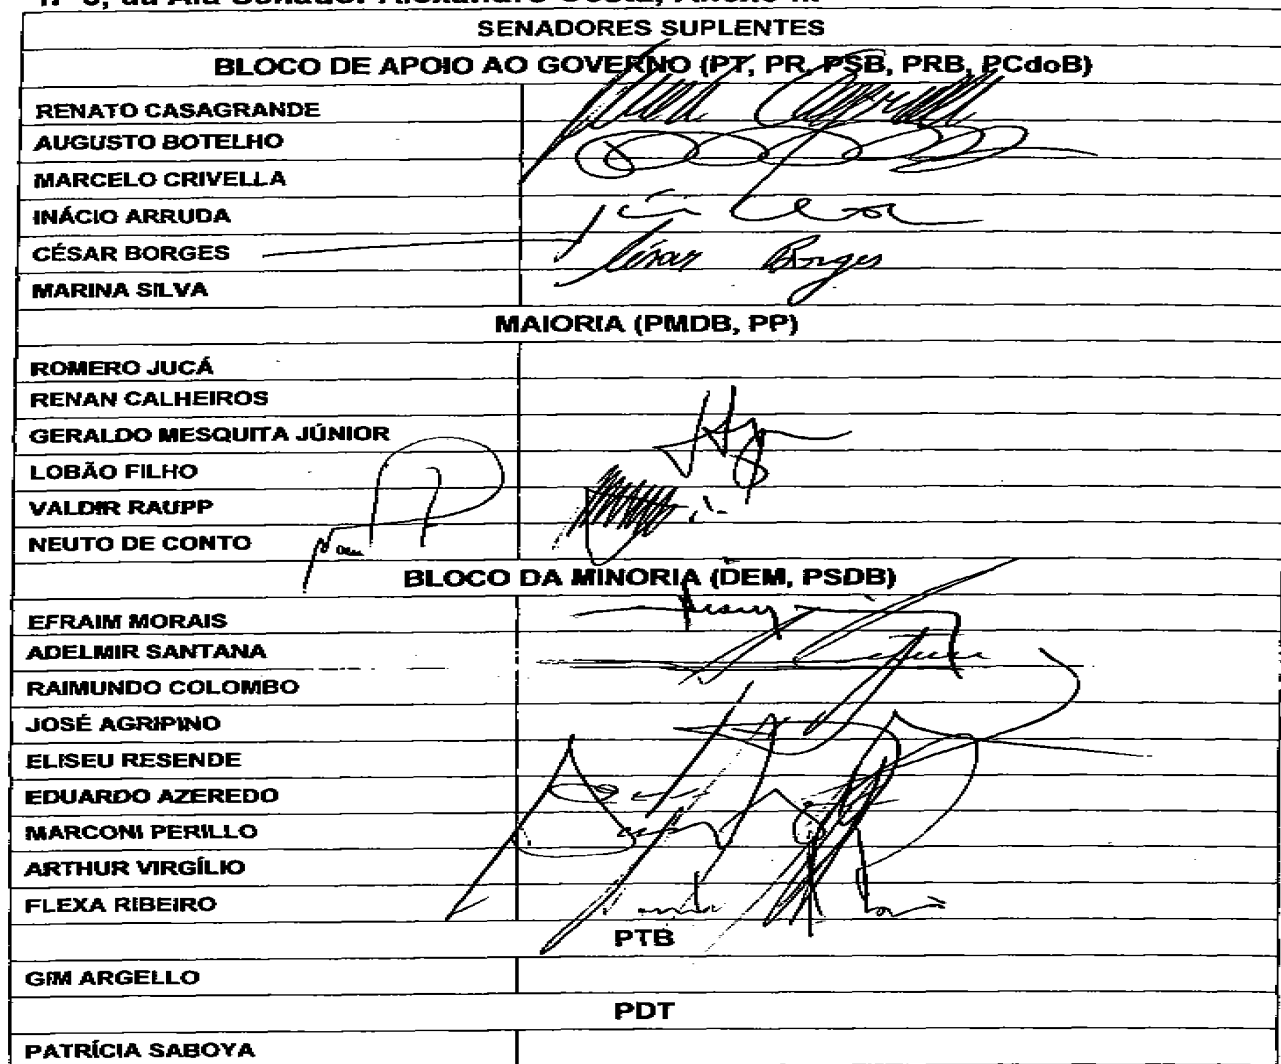 SENADORES SUPLENTES
BLOCO DE APOIO AO GOVERNO (PT, PR, PSB, PRB, PCdoB)
RENATO CASAGRANDE
AUGUSTO BOTELHO
MARCELO CRIVELLA
INÁCIO ARRUDA
CÉSAR BORGES César Borges
MARINA SILVA
MAIORIA (PMDB, PP)
ROMERO JUCÁ
RENAN CALHEIROS
GERALDO MESQUITA JÚNIOR
LOBÃO FILHO
VALDIR RAUPP
NEUTO DE CONTO
BLOCO DA MINORIA (DEM, PSDB)
EFRAIM MORAIS
ADELMIR SANTANA
RAIMUNDO COLOMBO
JOSÉ AGRIPINO
ELISEU RESENDE
EDUARDO AZEREDO
MARCONI PERILLO
ARTHUR VIRGÍLIO
FLEXA RIBEIRO
PTB
GIM ARGELLO
PDT
PATRÍCIA SABOYA